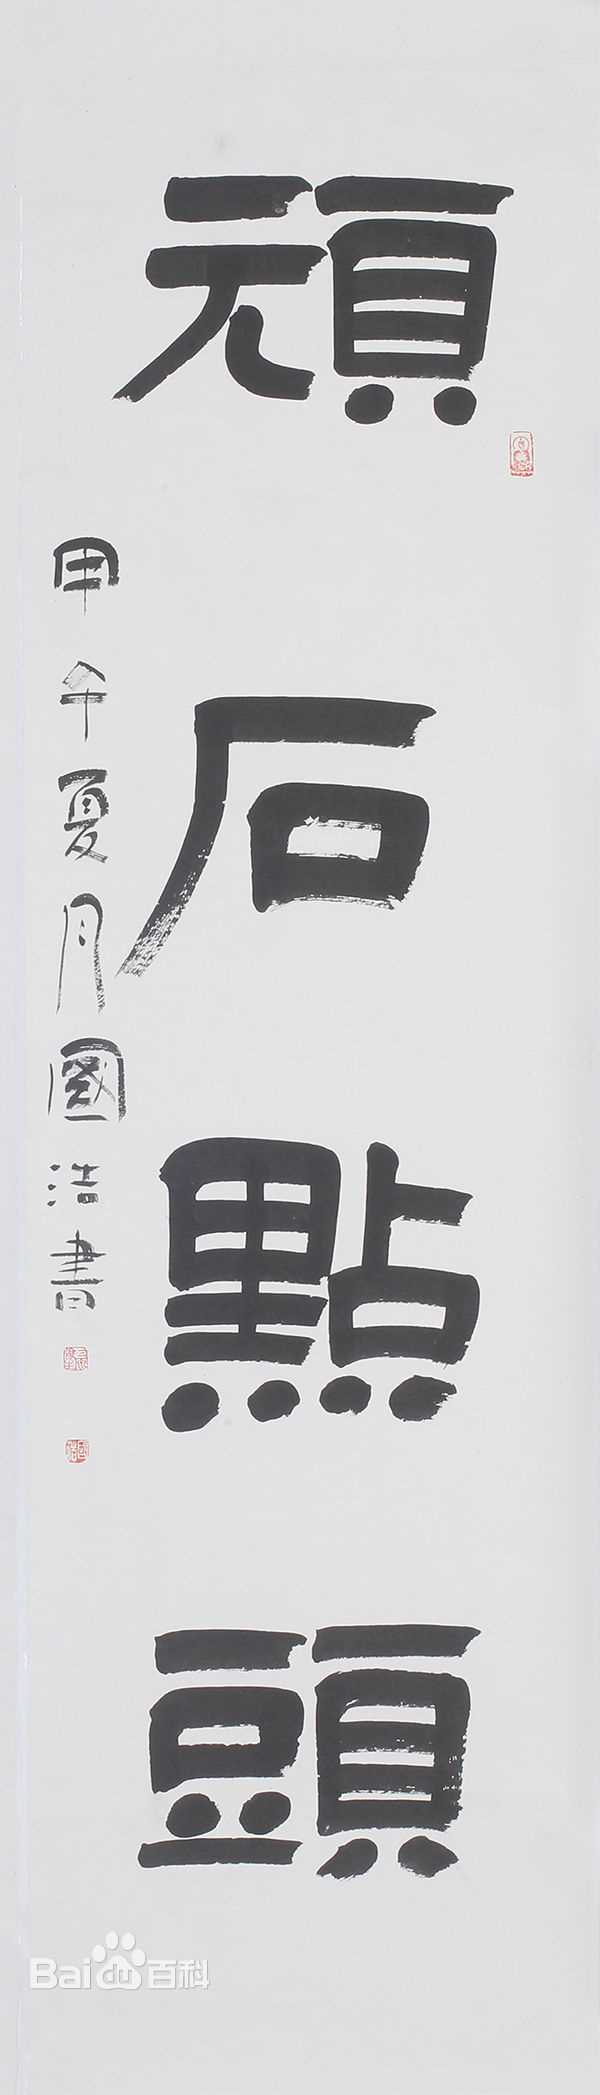 頑石點頭
甲午夏月國浩書
Bai百科